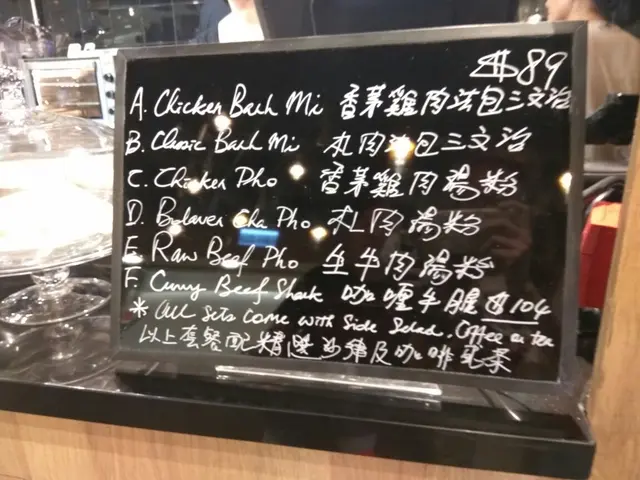 $89
A. Chicken Bach Mi 香茅雞肉法包三文治
B. Classic Bach Mi 扎肉法包三文治
C. Chicken Pho 香茅雞肉湯粉
D. Cha Pho 扎肉湯粉
E. Raw Beef Pho 生牛肉湯粉
F. Curry Beef Shank 咖喱牛腱 $104
* All Sets come with Side Salad. Coffee or tea
以上套餐配精選沙律及咖啡或茶